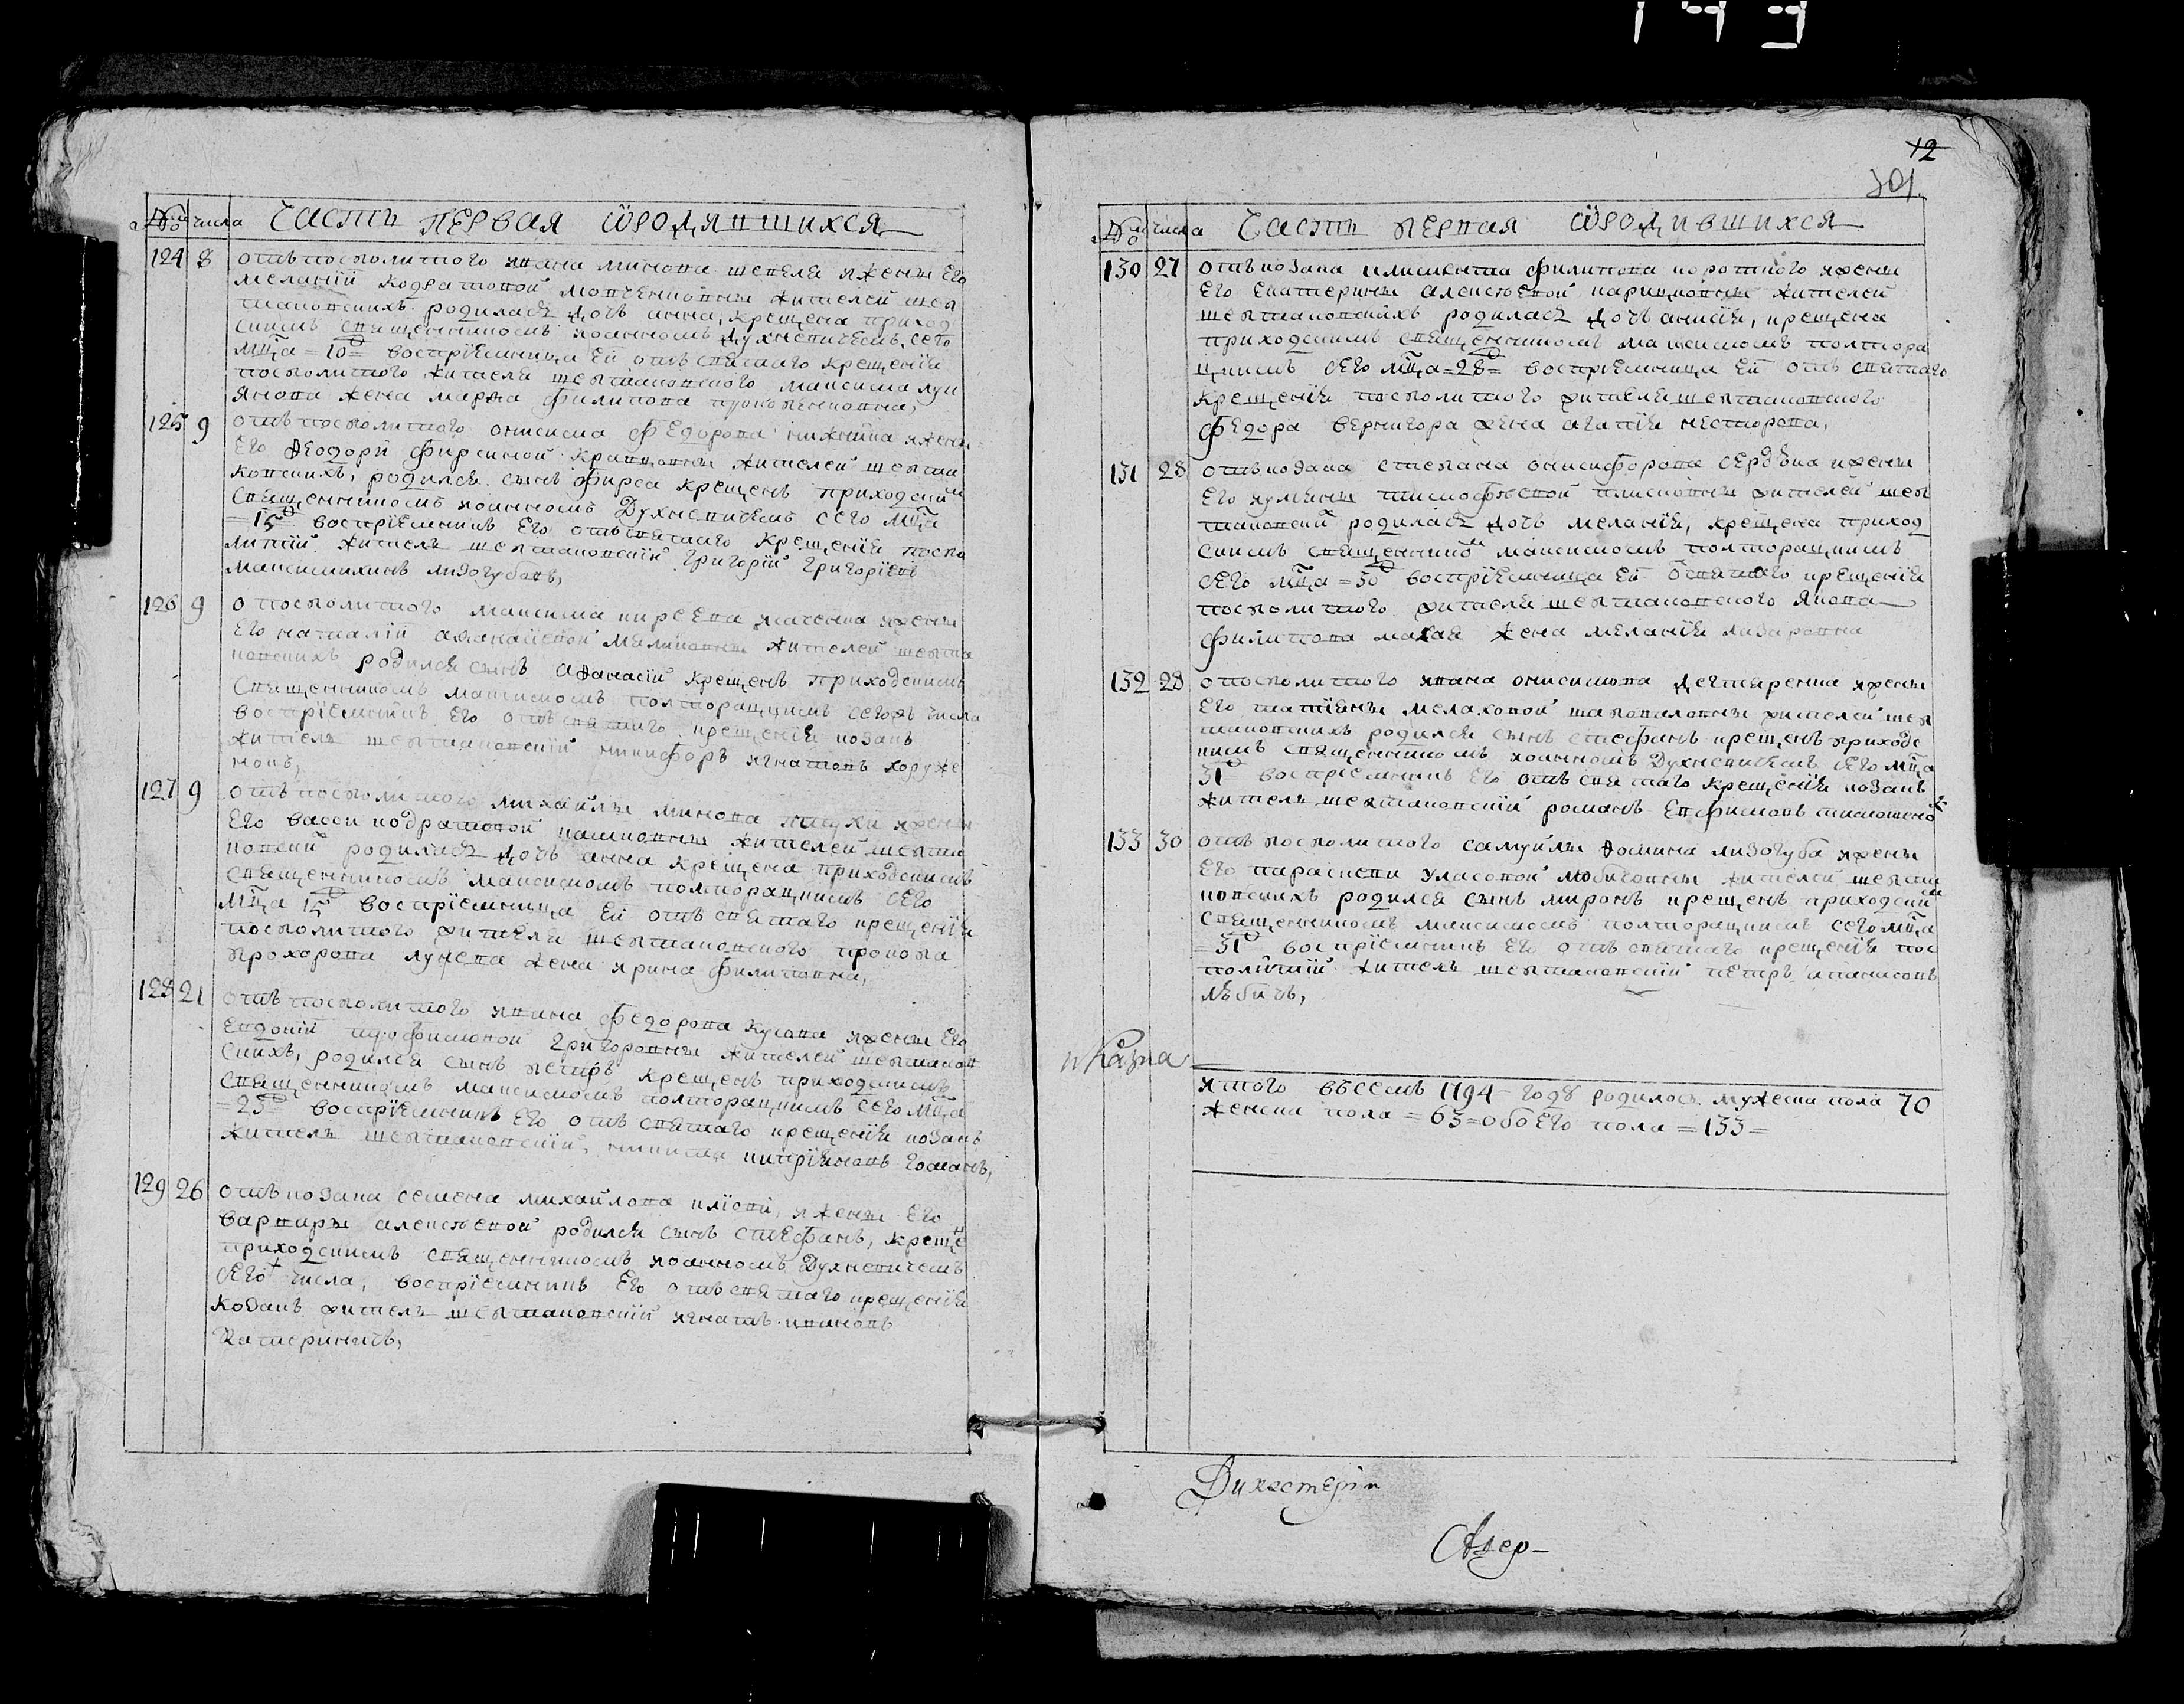 149
12
301.
№ числа Часть первая ѿродившихся
124 8 отъ посполитого ивана минова шепеля ижены его
меланіи кодратовой мовчановны жителей шеп
таковскихъ родилася дочь анна, крещена приход
скимъ священникомъ иоанномъ духневичемъ, сего
мца =10= воспріемница ей отъ святаго крещенія
посполитого жителя шептаковского максима лук
янова жена марѳа филипова
125 9 отъ посполитого онисима федорова нижника ижены
его ѳеодоры фирсиной кравцовны жителей шепта
ковскихъ, родился сынъ фирсъ крещенъ приходским
священникомъ иоанномъ Духневичемъ сего мца
=15 воспріемникъ его отъ святаго крещенія поспо
литій житель шептаковскій григорій григоріевъ
максимихинъ лизогубовъ,
126 9 ѿ посполитого максима киреева ижены
его наталіи аѳанасіевой жителей шепта
ковскихъ родился сынъ аѳанасій крещенъ приходскимъ
священникомъ максимомъ полторацкимъ сегожъ числа
воспріемникъ его отъ святаго крещенія козакъ
житель шептаковскій никифоръ игнатовъ хоруже
нокъ,
127 9 отъ посполитого михайлы минова ижены
его васси кодратовой жителей шепта
ковскій родилася дочь анна крещена приходскимъ
священникомъ максимомъ полторацкимъ сего
мца 15 воспріемница ей отъ святаго крещенія
посполитого жителя шептаковского прокопа
прохорова лунева жена ирина филиповна,
128 21 отъ посполитого ивана федорова кусава ижены его
евдокіи трофимовой григоровны жителей шептаков
скихъ, родился сынъ петръ крещенъ приходскимъ
священникомъ максимомъ полторацкимъ сего мца
=23= воспріемникъ его отъ святаго крещенія козакъ
житель шептаковскій, кипріяновъ гомакъ,
129 26 отъ козака семена михайлова ижены его
варвары алексѣевой родился сынъ стефанъ, крещен
приходскимъ священникомъ иоанномъ Духневичемъ
сего числа, воспріемникъ его отъ святаго крещенія
козакъ житель шептаковскій игнатъ ивановъ
катериничъ,
№ числа Часть первая ѿродившихся
130 27 отъ козака климента филипова короткого ижены
его екатерины алексѣевой жителей
шептаковскихъ родилася дочь анисія, крещена
приходскимъ священникомъ максимомъ полтора
цкимъ сего мца =28= воспріемница ей отъ святаго
крещенія посполитого жителя шептаковского
федора вернигора жена агафія несторова,
131 28 отъ козака степана онисифорова сердѣка ижены
его иулѣяны тимофѣевой жителей шеп
таковскій родилася дочь меланія, крещена приход
скимъ священником максимомъ полторацкимъ
сего мца =30 воспріемница ей ѿ святого крещенія
посполитого жителя шептаковского якова
филипова махая жена меланія лазаровна
132 28 ѿ посполитого ивана онисимова дегтяренка ижены
его татіяны мелаховой шаповаловны жителей шеп
таковскихъ родился сынъ стефанъ крещенъ приходс
кимъ священникомъ иоанномъ Духневичемъ сего мца
31 воспріемникъ его отъ святаго крещенія козакъ
житель шептаковскій романъ евфимовъ тимошенко
133 30 отъ посполитого самуйлы ѳомина лизогуба ижены
его параскеви уласовой жителей шепта
ковскихъ родился сынъ миронъ крещенъ приходским
священникомъ максимомъ полторацкимъ сего мца
=31 воспріемникъ его отъ святаго крещенія пос
политій житель шептаковскій петръ
лѣбичъ,
итого въсемъ 1794 годꙋ родилось мужеска пола 70
женска пола =63= обоего пола =133=